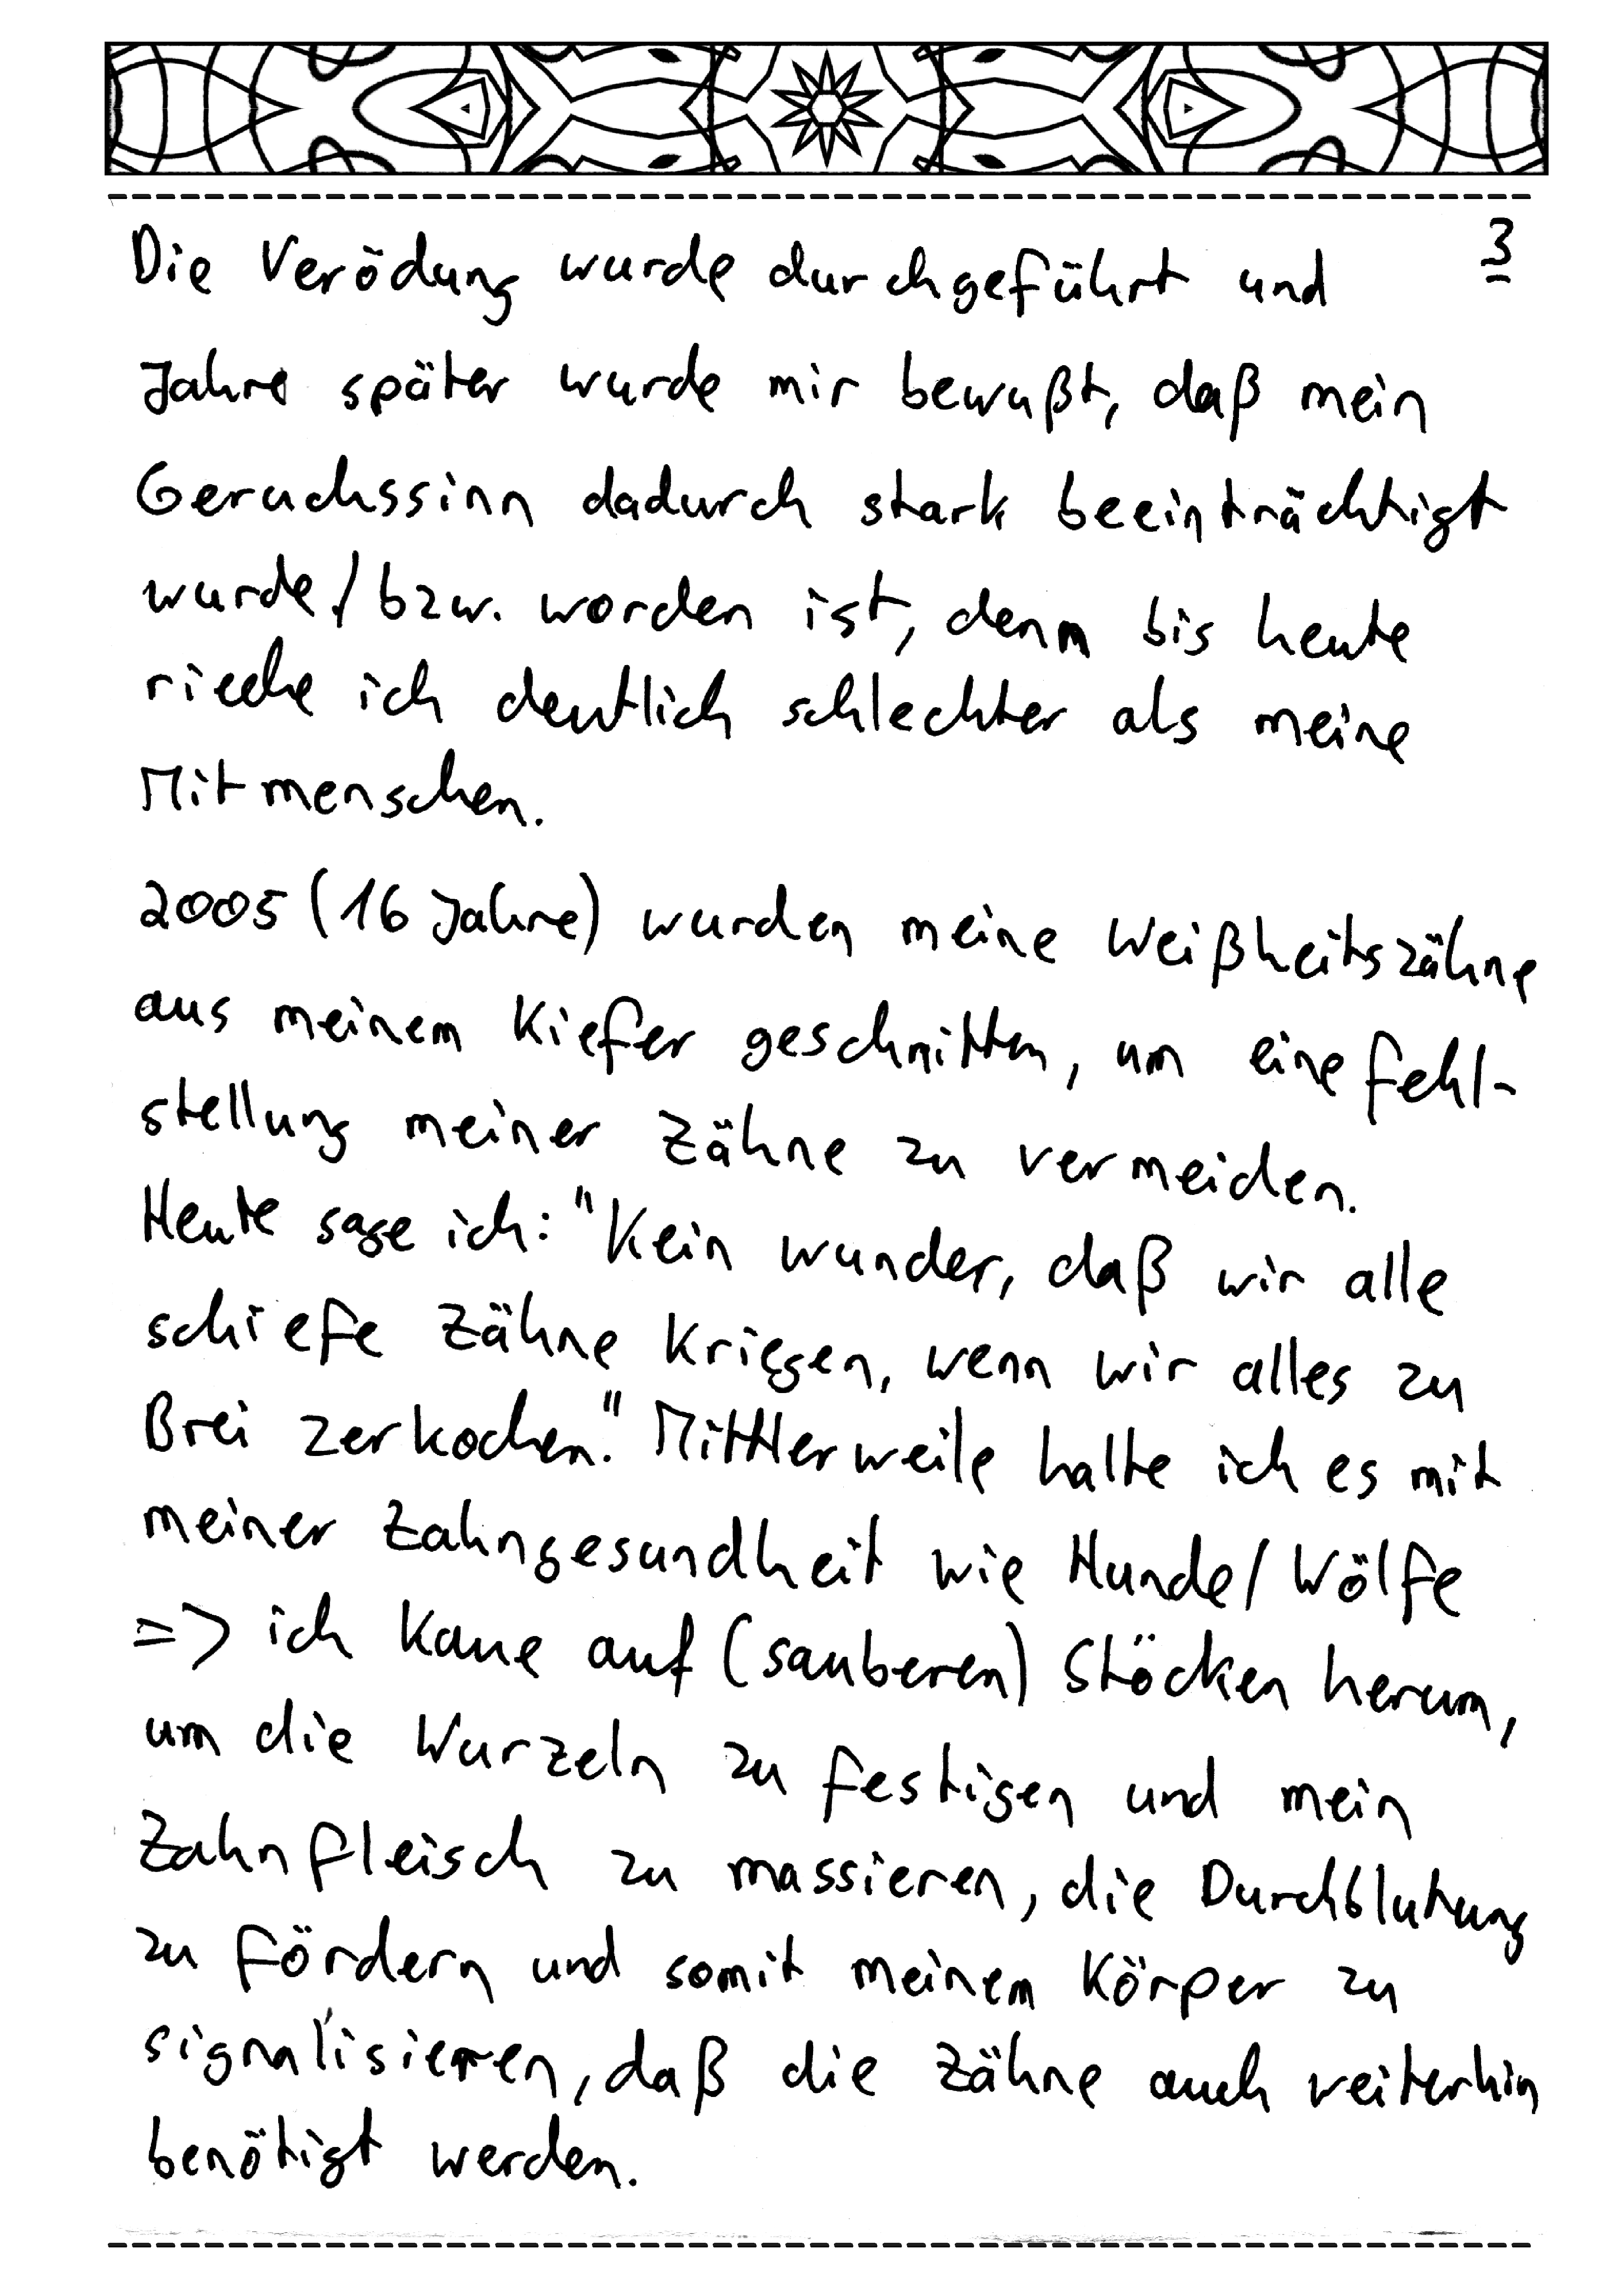 3
Die Verödung wurde durchgeführt und
Jahre später wurde mir bewußt, daß mein
Geruchssinn dadurch stark beeinträchtigt
wurde/bzw. worden ist, denn bis heute
rieche ich deutlich schlechter als meine
Mitmenschen.
2005 (16 Jahre) wurden meine Weißheitszähne
aus meinem Kiefer geschnitten, um eine Fehl-
stellung meiner Zähne zu vermeiden.
Heute sage ich: "Kein wunder, daß wir alle
schiefe Zähne kriegen, wenn wir alles zu
Brei zerkochen." Mittlerweile halte ich es mit
meiner Zahngesundheit wie Hunde/Wölfe
=> ich kaue auf (sauberen) Stöcken herum,
um die Wurzeln zu festigen und mein
Zahnfleisch zu massieren, die Durchblutung
zu fördern und somit meinem Körper zu
signalisieren, daß die Zähne auch weiterhin
benötigt werden.